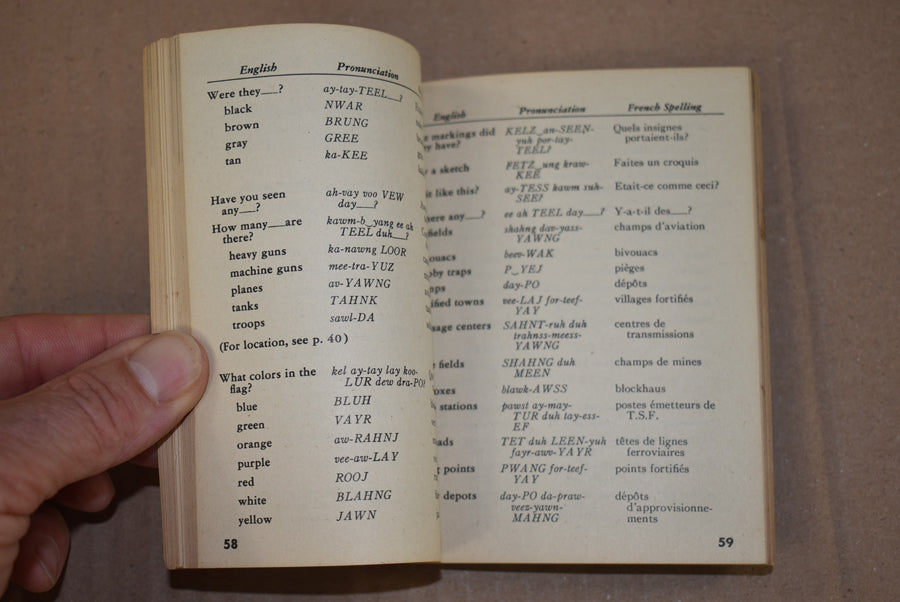 English Pronunciation
Were they___? ay-tay-TEEL___?
black NWAR
brown BRUNG
gray GREE
tan ka-KEE
Have you seen ah-vay voo VEW
any___? day___?
How many___are kawm-b‿yang ee ah
there? TEEL duh___?
heavy guns ka-nawng LOOR
machine guns mee-tra-YUZ
planes av-YAWNG
tanks TAHNK
troops sawl-DA
(For location, see p. 40)
What colors in the kel ay-tay lay koo-
flag? LUR dew dra-PO?
blue BLUH
green VAYR
orange aw-RAHNJ
purple vee-aw-LAY
red ROOJ
white BLAHNG
yellow JAWN
58
English Pronunciation French Spelling
markings did KELZ‿an-SEEN- Quels insignes
have? yuh por-tay- portaient-ils?
TEEL?
a sketch FETZ‿ung kraw- Faites un croquis
KEE
like this? ay-TESS kawm suh- Etait-ce comme ceci?
SEE?
any___? ee ah TEEL day___? Y-a-t-il des___?
fields shahng dav-yass- champs d'aviation
YAWNG
beev-WAK bivouacs
traps P‿YEJ pièges
day-PO dépôts
towns vee-LAJ for-teef- villages fortifiés
YAY
centers SAHNT-ruh duh centres de
trahnss-meess- transmissions
YAWNG
fields SHAHNG duh champs de mines
MEEN
blawk-AWSS blockhaus
stations pawst ay-may- postes émetteurs de
TUR duh tay-ess- T.S.F.
EF
TET duh LEEN-yuh têtes de lignes
fayr-awv-YAYR ferroviaires
points PWANG for-teef- points fortifiés
YAY
depots day-PO da-praw- dépôts
veez-yawn- d'approvisionne-
MAHNG ments
59